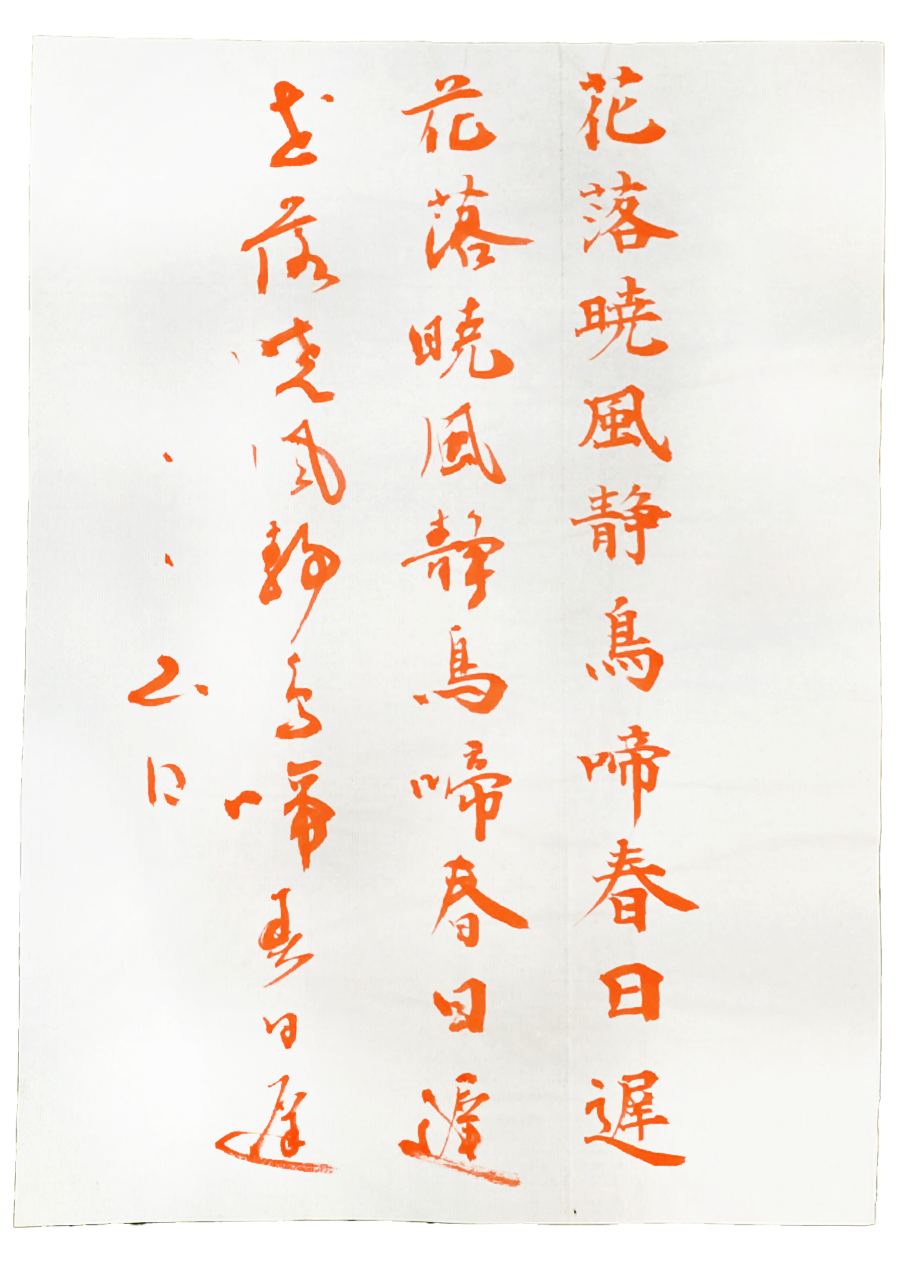 花落暁風静鳥啼春日遅
花落暁風静鳥啼春日遅
花落暁風静鳥啼春日遅